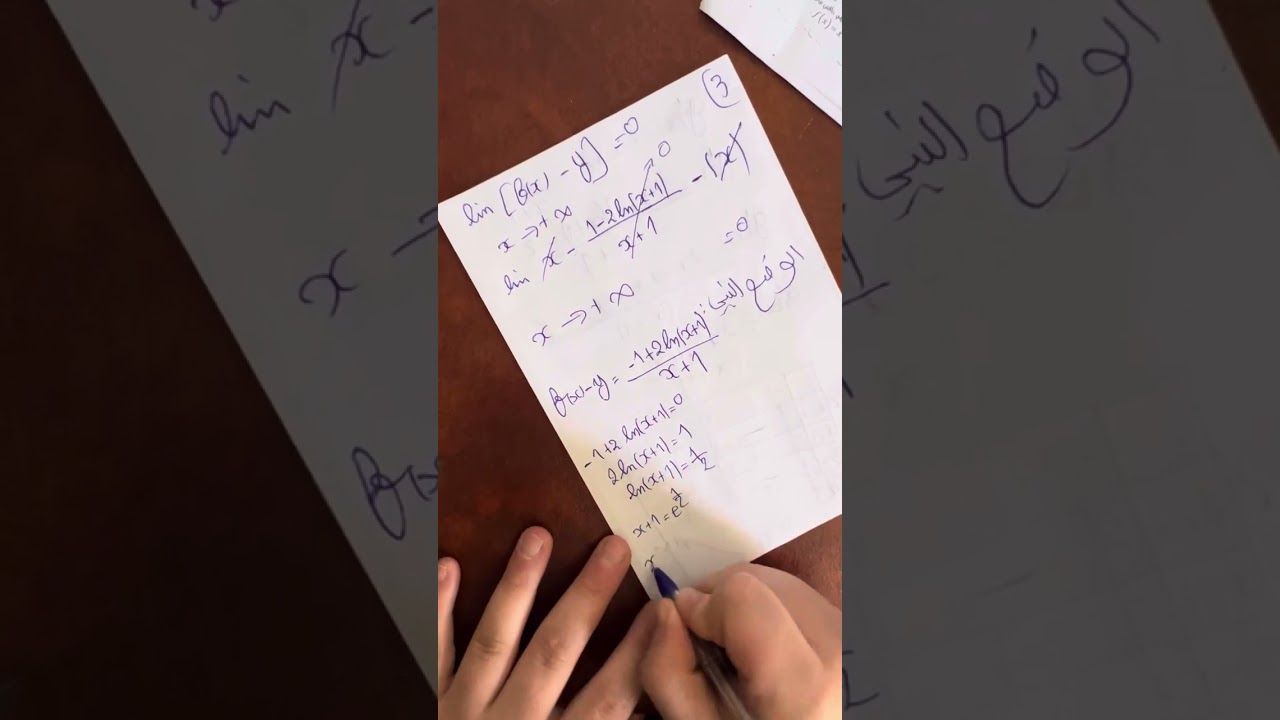 3)
lin [f(x) - y] = 0
x → + ∞
lin x - \frac{1-2ln(x+1)}{x+1} → 0 - (x) = 0
x → + ∞
الوضع النسبي:
f(x)-y = \frac{-1+2ln(x+1)}{x+1}
-1+2 ln(x+1)=0
2ln(x+1)=1
ln(x+1)=\frac{1}{2}
x+1=e^{\frac{1}{2}}
x